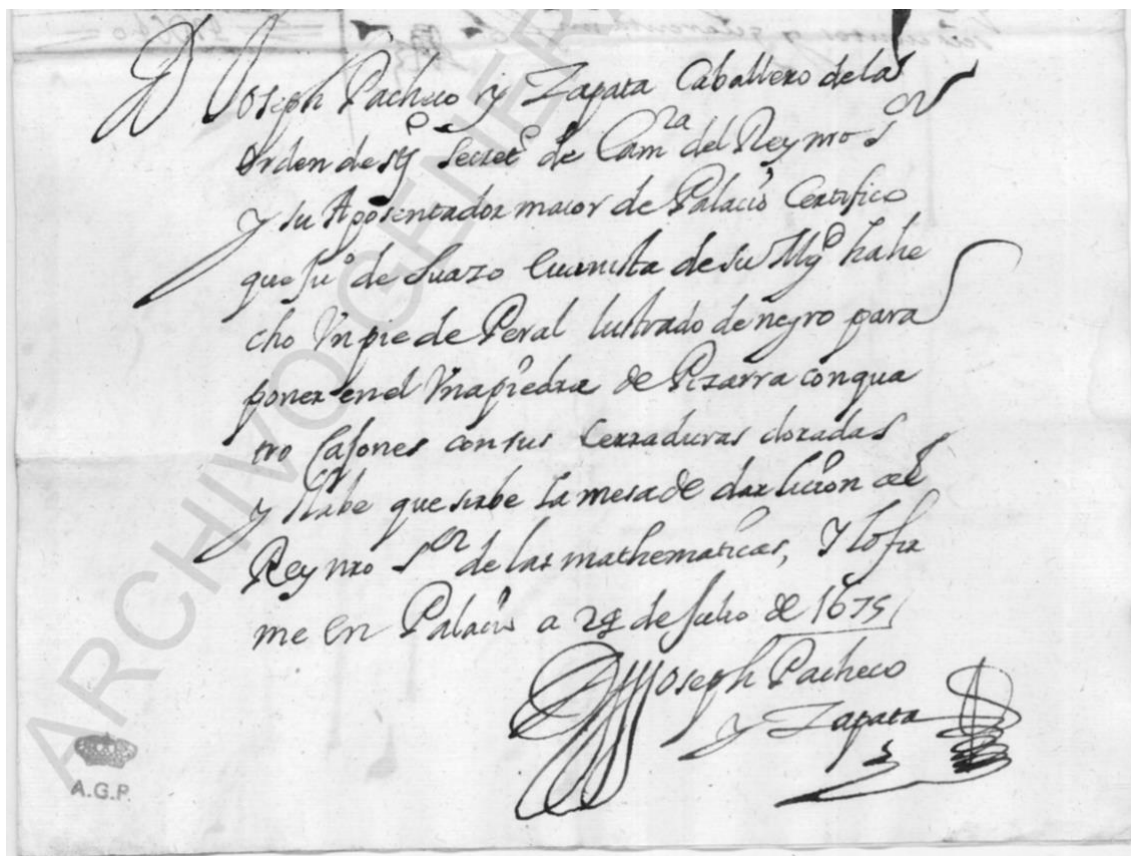 D Joseph Pacheco y Zapata Caballero de la
orden de Sgº Secretº de Camra del Rey nro Sor
y su Aposentador maior de Palacio Certifico
que Juº de Suazo euanista de su Mgd ha he
cho Vn pie de Peral lustrado de negro para
poner en el Vna piedra de Pizarra con qua
tro Cajones con sus Cerraduras doradas
y llabe que sirbe la mesa de dar licion al
Rey nro Sor de las mathematicas, Y lo fir
me en Palacio a 29 de Julio de 1675
D Joseph Pacheco
y Zapata
ARCHIVO GENER
A.G.P.